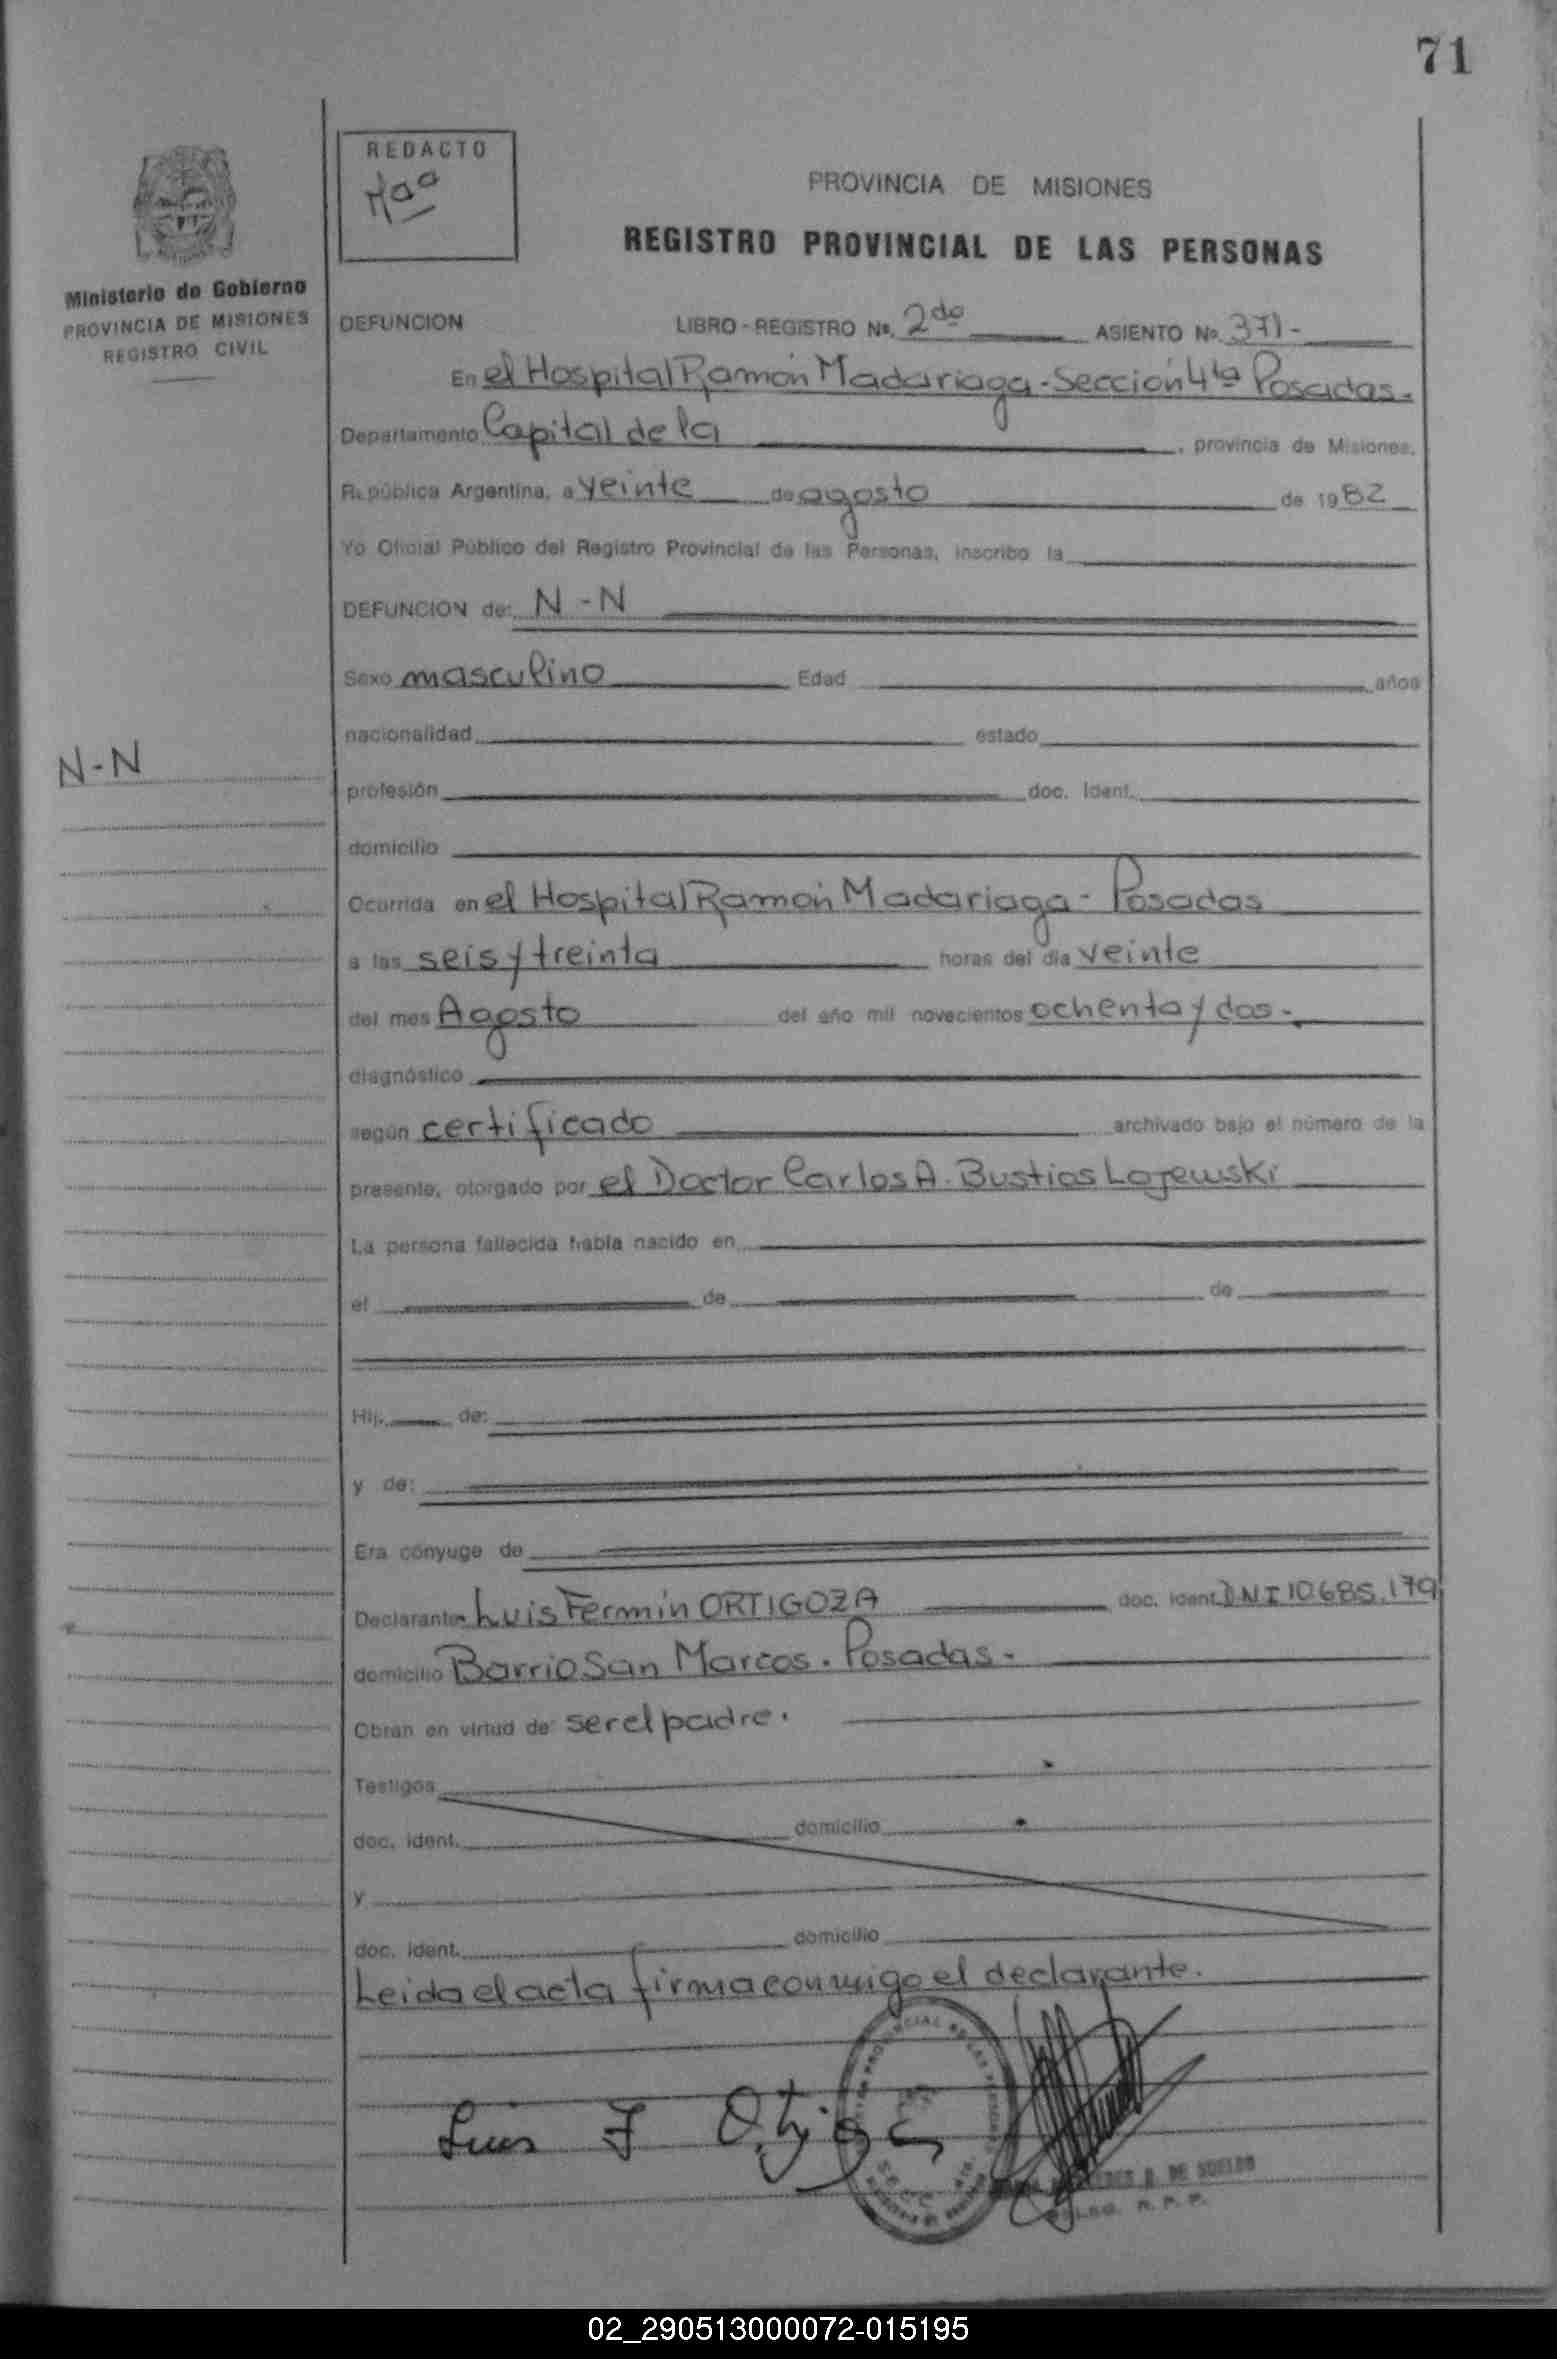 71
REDACTO
PROVINCIA DE MISIONES
REGISTRO PROVINCIAL DE LAS PERSONAS
Ministerio de Gobierno
PROVINCIA DE MISIONES
REGISTRO CIVIL
DEFUNCION LIBRO-REGISTRO Nº. 2do ASIENTO Nº. 371-
En el Hospital Ramón Madariaga - Sección 4ta Posadas.
Departamento Capital de la , provincia de Misiones,
República Argentina, a veinte de agosto de 1982
Yo Oficial Público del Registro Provincial de las Personas, inscribo la
DEFUNCION de: N - N
Sexo masculino Edad años
nacionalidad estado
N-N
profesión doc. ident.
domicilio
Ocurrida en el Hospital Ramón Madariaga - Posadas
a las seis y treinta horas del día veinte
del mes Agosto del año mil novecientos ochenta y dos -.
diagnóstico
según certificado archivado bajo el número de la
presente, otorgado por el Doctor Carlos A. Bustios Lojewski
La persona fallecida había nacido en
el de de
Hij. de:
y de:
Era cónyuge de
Declarante Luis Fermin ORTIGOZA doc. ident. DNI 10.685.179
domicilio Barrio San Marcos. Posadas.-
Obran en virtud de ser el padre.
Testigos
doc. ident. domicilio
y
doc. ident. domicilio
Leida el acta firma conmigo el declarante.
Luis F
DE SUELDO
R. P. P.
02_290513000072-015195